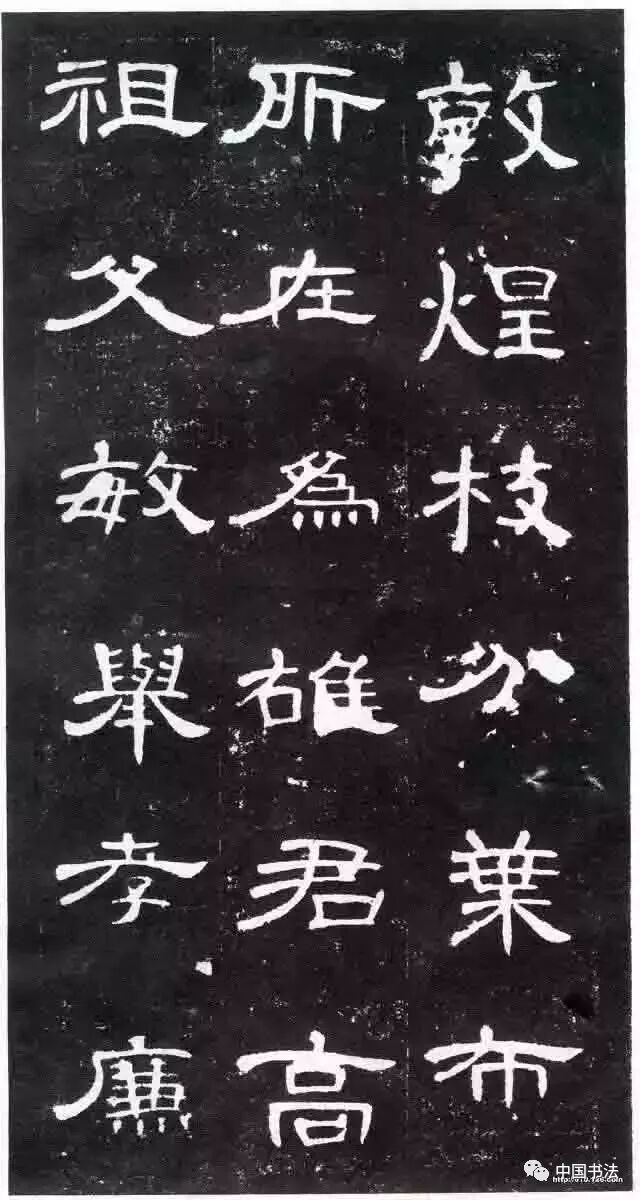 敦煌枝分葉布
所在為雄君高
祖父敏舉孝廉
中国书法